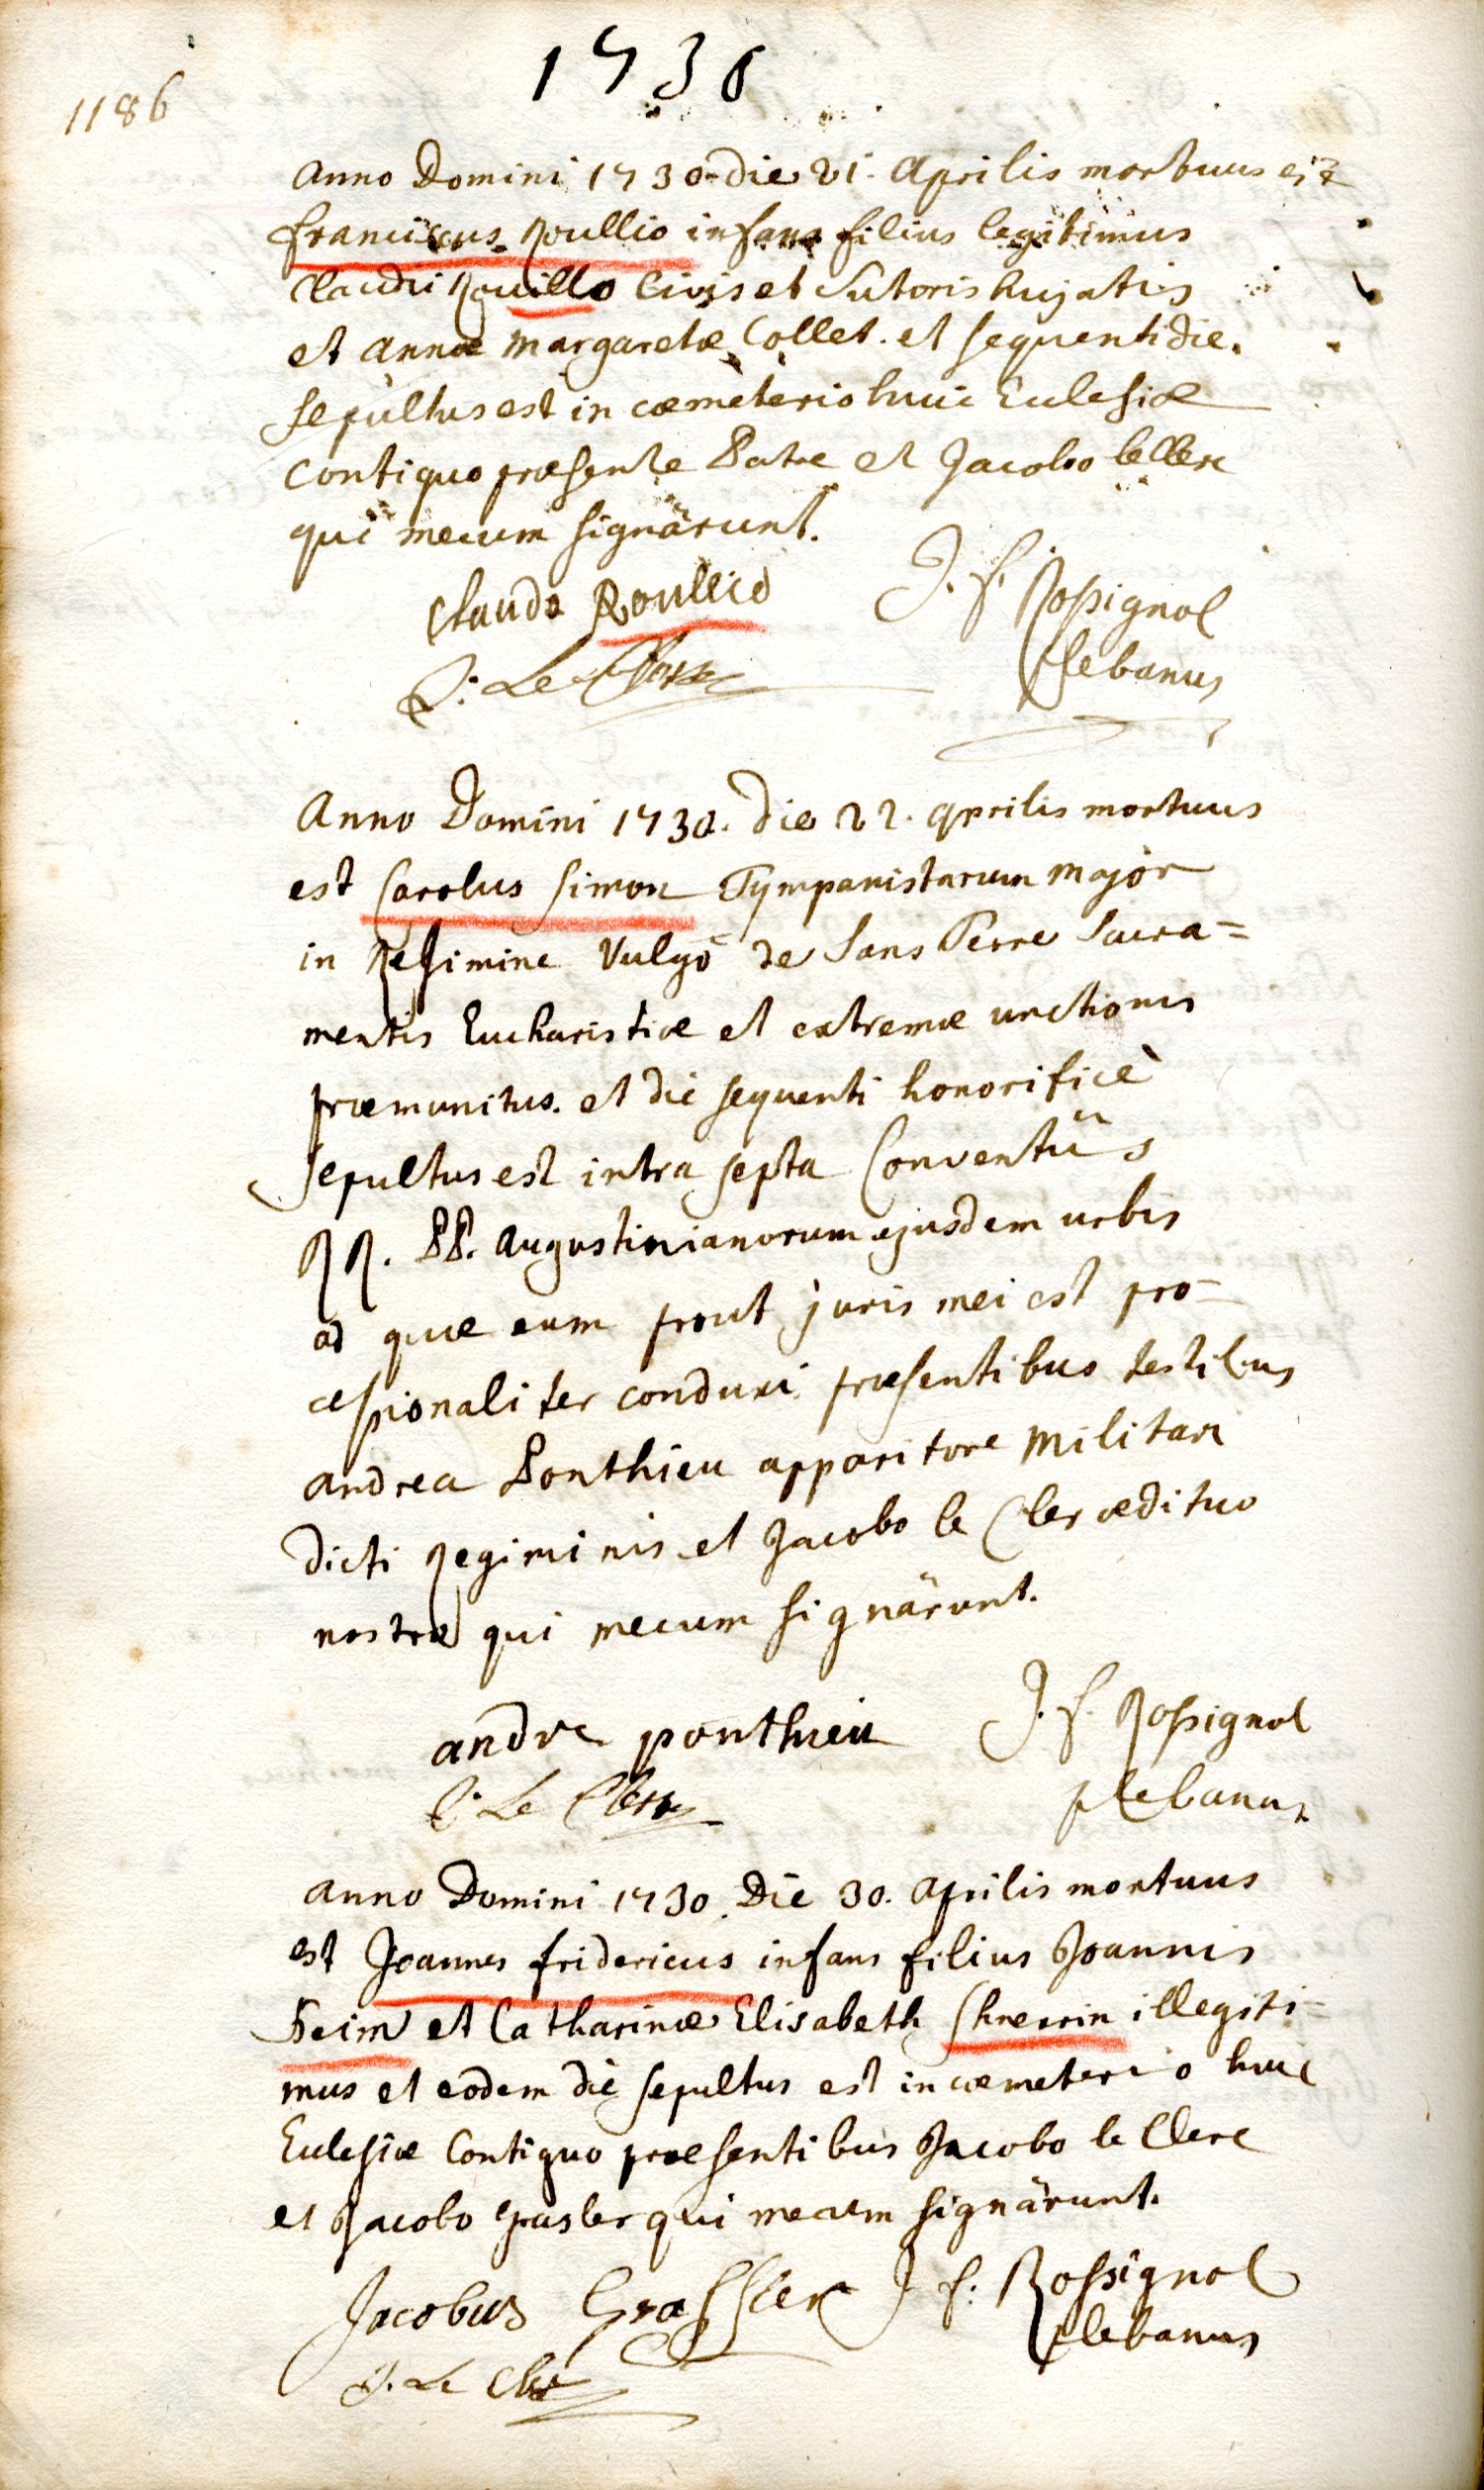 1730
1186
Anno Domini 1730 die 21. Aprilis mortuus est
franciscus Roullio infans filius legitimus
Claudii Rouillo Civis et Sutoris hujatis
et Annæ Margaretæ Collet. et sequenti die.
sepultus est in cœmeterio huic Ecclesiæ
contiguo præsente Patre et Jacobo le Clerc
qui mecum signârunt.
Claude Roullio
J. f. Rossignol
J. Le Clerc
Plebanus
Anno Domini 1730. Die 22. Aprilis mortuus
est Carolus Simon Tympanistarum major
in Regimine Vulgo de Sans Terre Sacra=
mentis Eucharistiæ et extremæ unctionis
præmunitus. et die sequenti honorificè
sepultus est intra septa Conventûs
RR. PP. Augustinianorum ejusdem urbis
ad quæ eum prout juris mei est pro=
cessionaliter conduxi præsentibus testibus
Andrea Ponthieu apparitore Militari
dicti Regiminis et Jacobo le Clerc ædituo
nostro qui mecum signârunt.
andre ponthieu
J. f. Rossignol
J. Le Clerc
plebanus
Anno Domini 1730. Die 30. Aprilis mortuus
est Joannes fridericus infans filius Joannis
Heim et Catharinæ Elisabeth Shnerrin illegiti=
mus et eodem die sepultus est in cœmeterio huic
Ecclesiæ Contiguo præsentibus Jacobo le Clerc
et Jacobo Grasler qui mecum signârunt.
Jacobus Grassler
J. f. Rossignol
Plebanus
J. Le Clerc